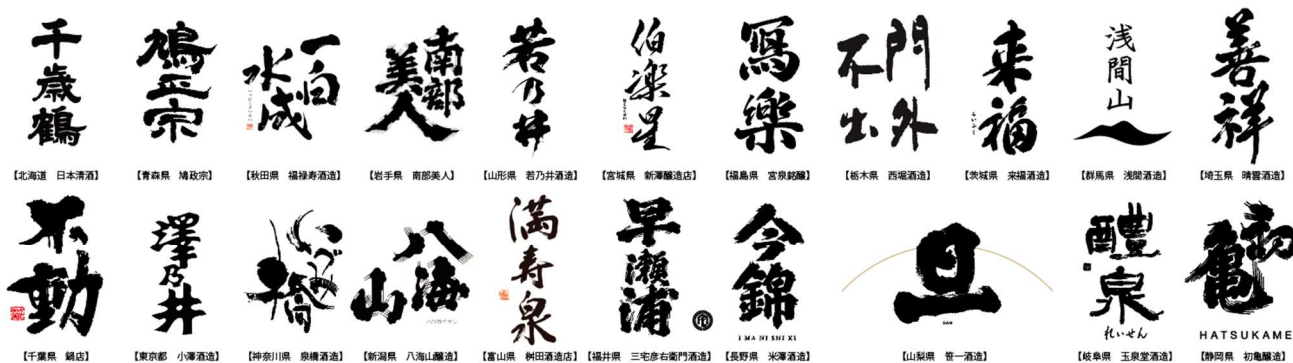 千歳鶴
【北海道　日本清酒】
鳩正宗
【青森県　鳩政宗】
一白
水成
【秋田県　福禄寿酒造】
南部
美人
【岩手県　南部美人】
若乃井
【山形県　若乃井酒造】
伯楽星
【宮城県　新澤醸造店】
寫樂
【福島県　宮泉銘醸】
門外
不出
【栃木県　西堀酒造】
来福
らいふく
【茨城県　来福酒造】
浅間山
【群馬県　浅間酒造】
善祥
【埼玉県　晴雲酒造】
不動
【千葉県　鍋店】
澤乃井
【東京都　小澤酒造】
いづみ
橋
【神奈川県　泉橋酒造】
八海
山
ハツカイサン
【新潟県　八海山醸造】
満寿泉
【富山県　桝田酒造店】
早瀬浦
【福井県　三宅彦右衛門酒造】
今錦
IMA NI SHI KI
【長野県　米澤酒造】
旦
DAN
【山梨県　笹一酒造】
醴泉
れいせん
【岐阜県　玉泉堂酒造】
初
亀
HATSUKAME
【静岡県　初亀醸造】